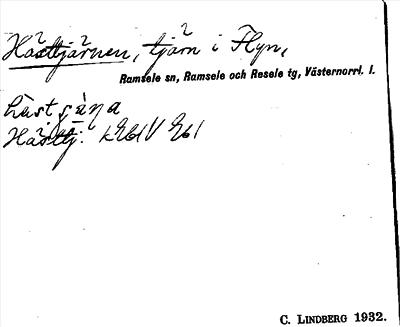 Hästtjärnen, tjärn i Flyn,
Ramsele sn, Ramsele och Resele tg, Västernorrl. l.
Hästtj:
C. Lindberg 1932.